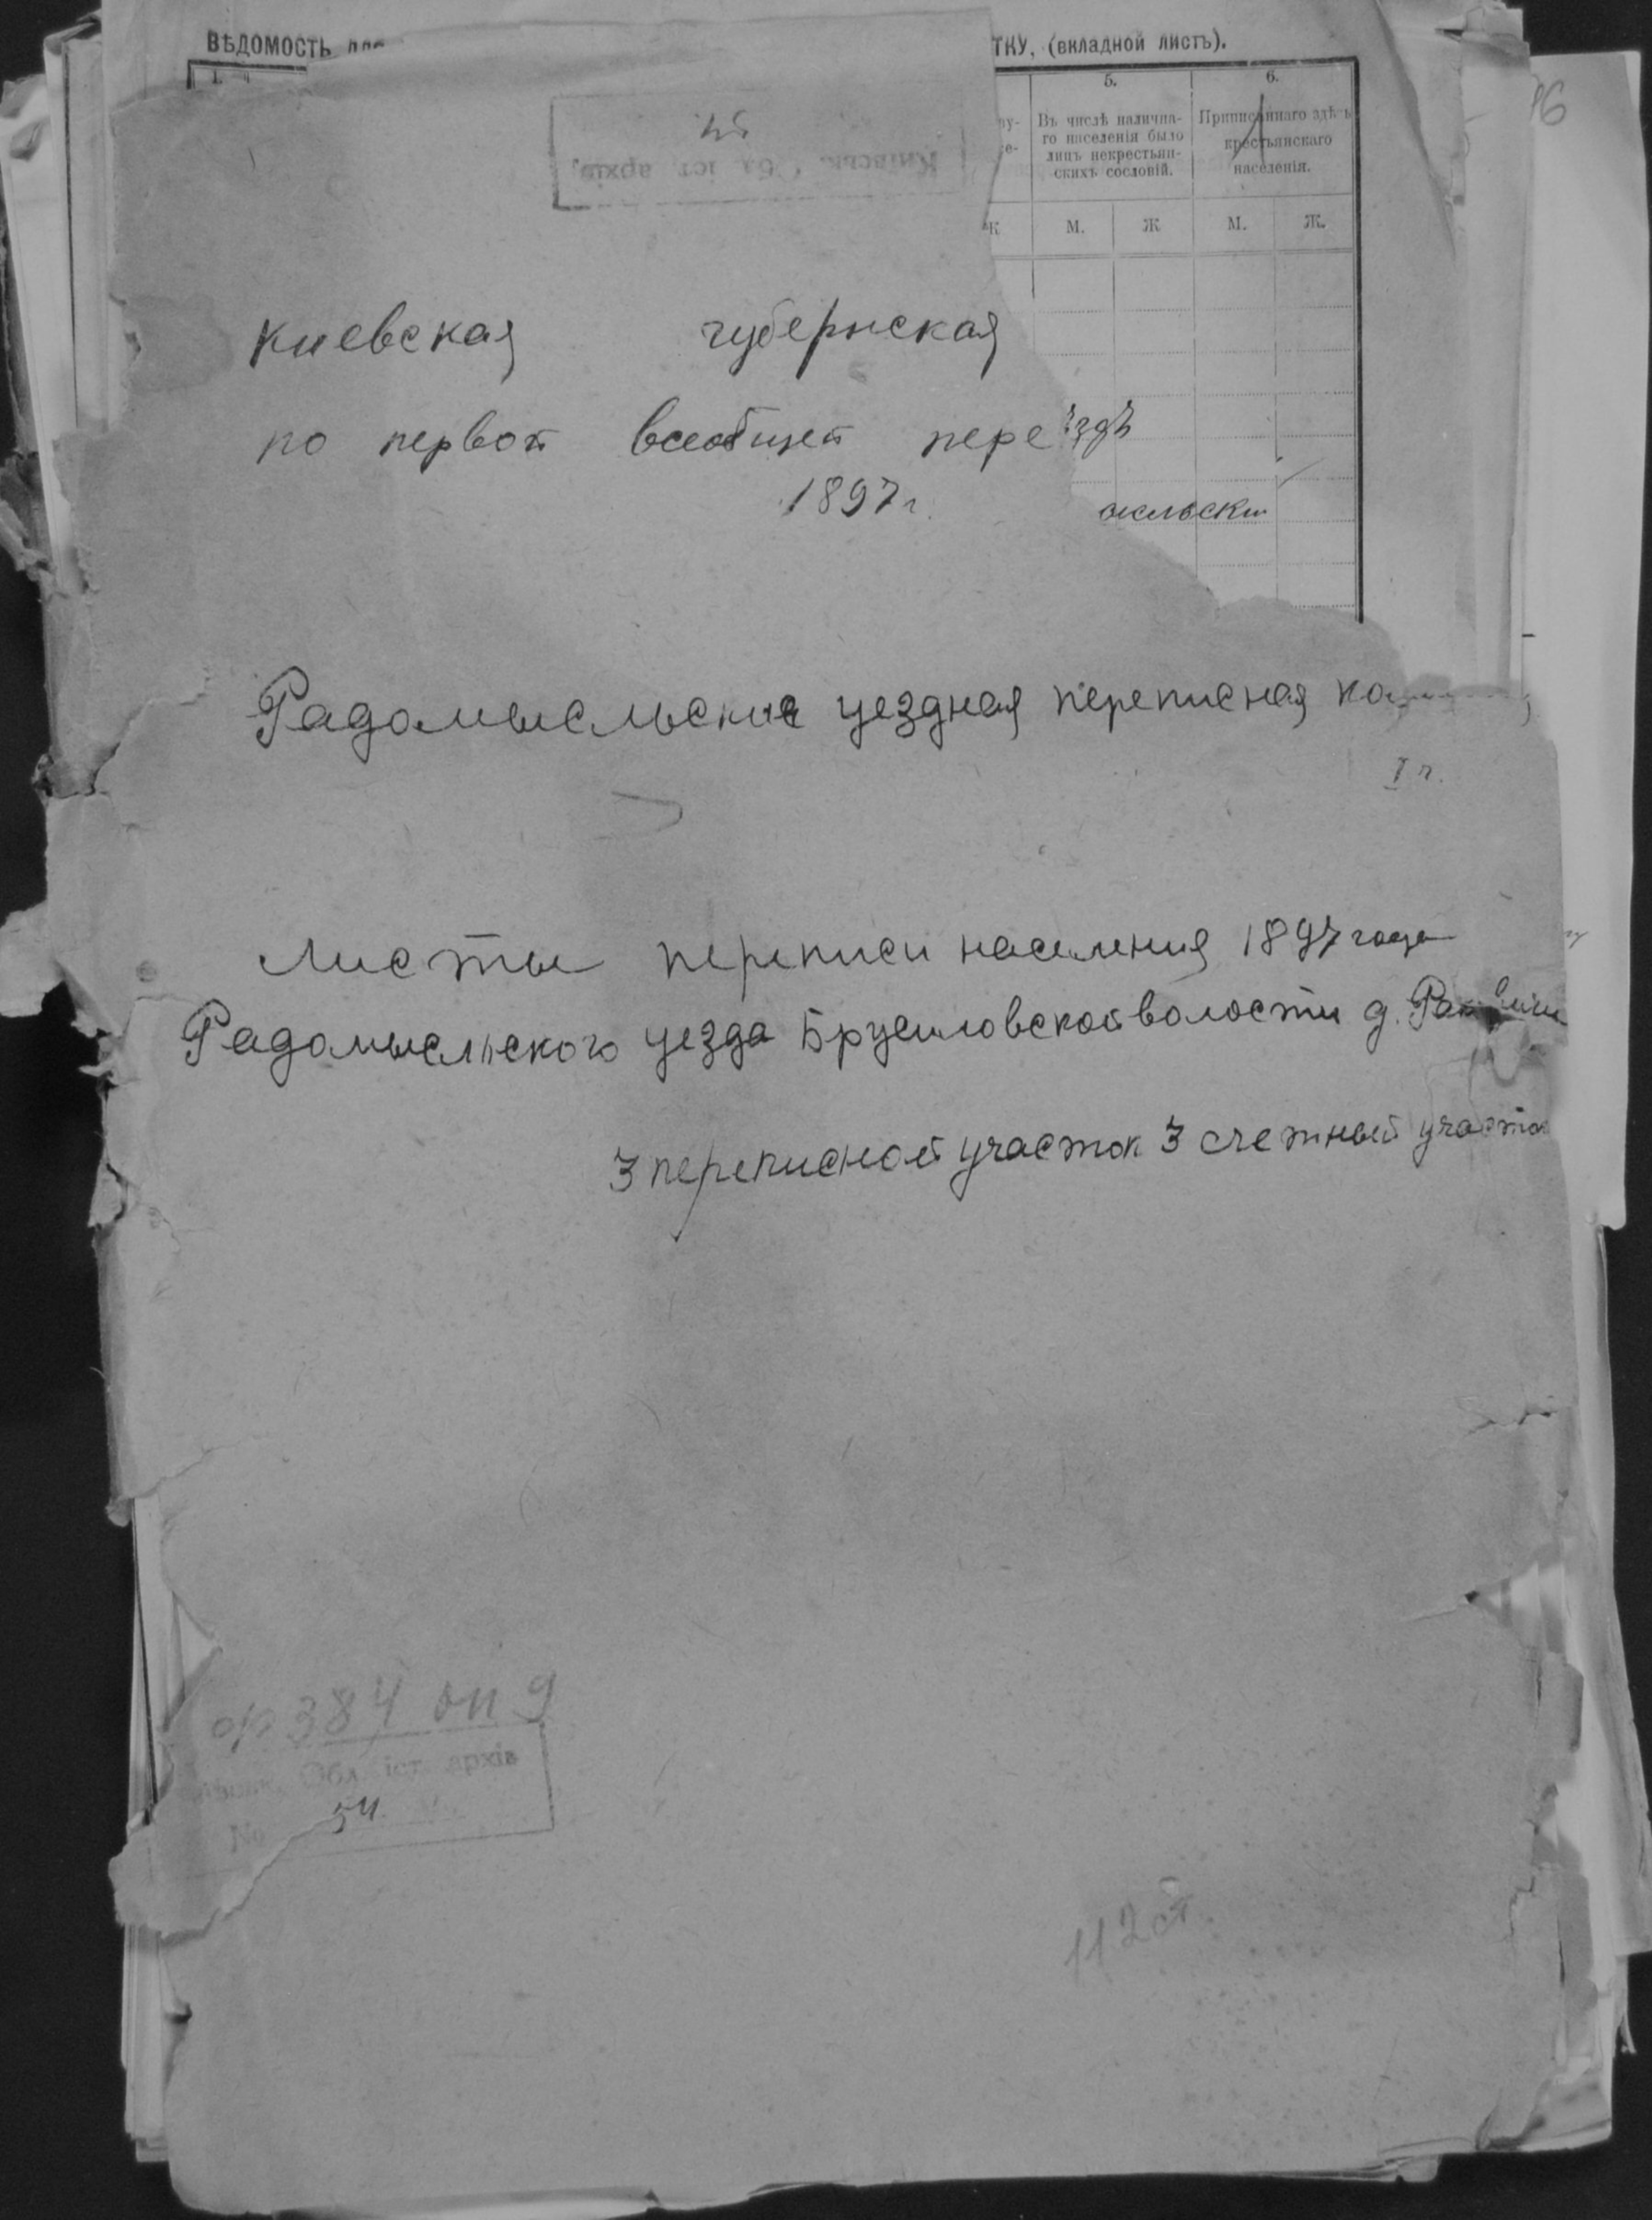 ВѢДОМОСТЬ
ТКУ, (вкладной листъ).
5.
6.
Въ числѣ налична-
го населенія было
лицъ некрестьян-
скихъ сословій.
Приписаннаго здѣсь
крестьянскаго
населенія.
М.
Ж
М.
Ж.
54
Київськ. Обл. іст. архів.
Киевская губернская
по первой всеобщей пере
1897 г.
Радомысльская уездная переписная
I г.
Листы переписи населения 1897 года
Радомысльского уезда Брусиловской волости д.
3 переписной участок 3 счетный участок
ф 384 оп 9
Обл. іст. архів
№ 54